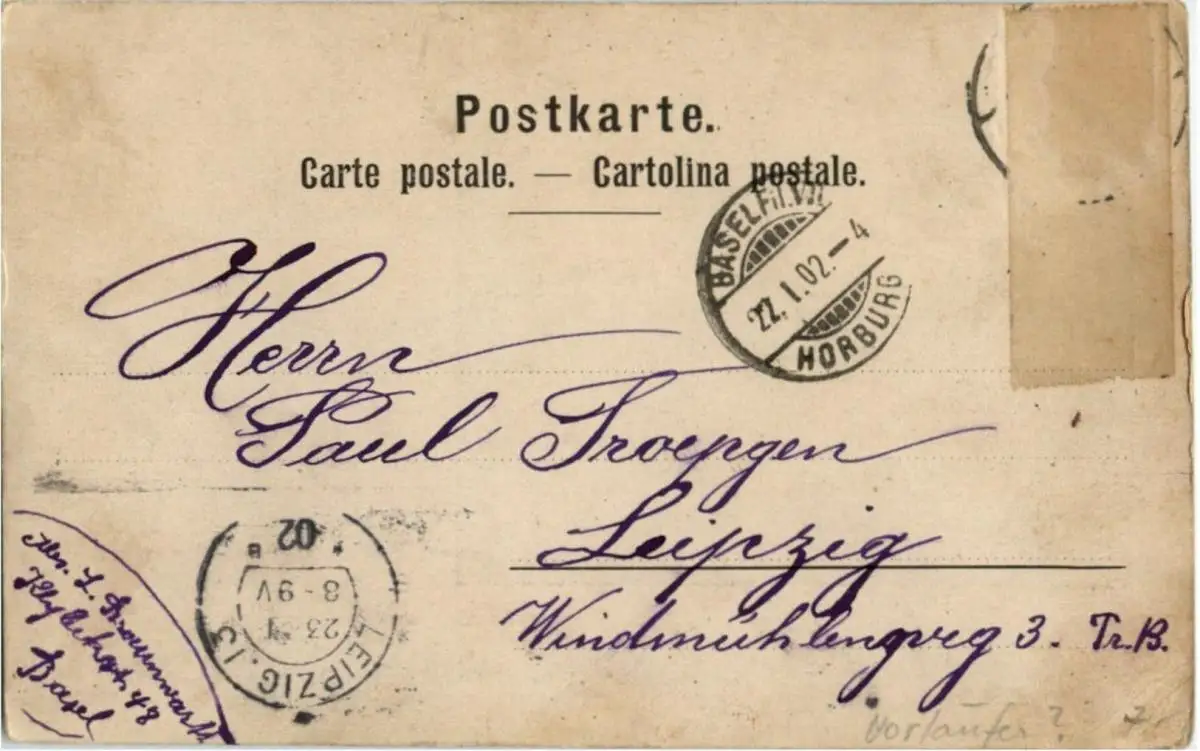 Postkarte.
Carte postale. — Cartolina postale.
BASEL Fil. VII
22.I.02.–4
HORBURG
Herrn
Paul Troepgen
Leipzig
Windmühlenweg 3. Tr. B.
LEIPZIG.13
23 1
8-9V
* 02 B
L.
48
Basel
Vorläufer? 7.